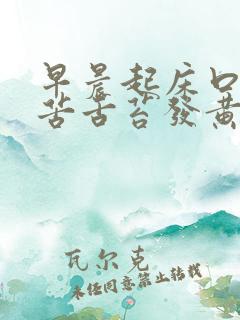 早晨起床口
苦舌苔發黃
瓦尔克
未经同意禁止转载